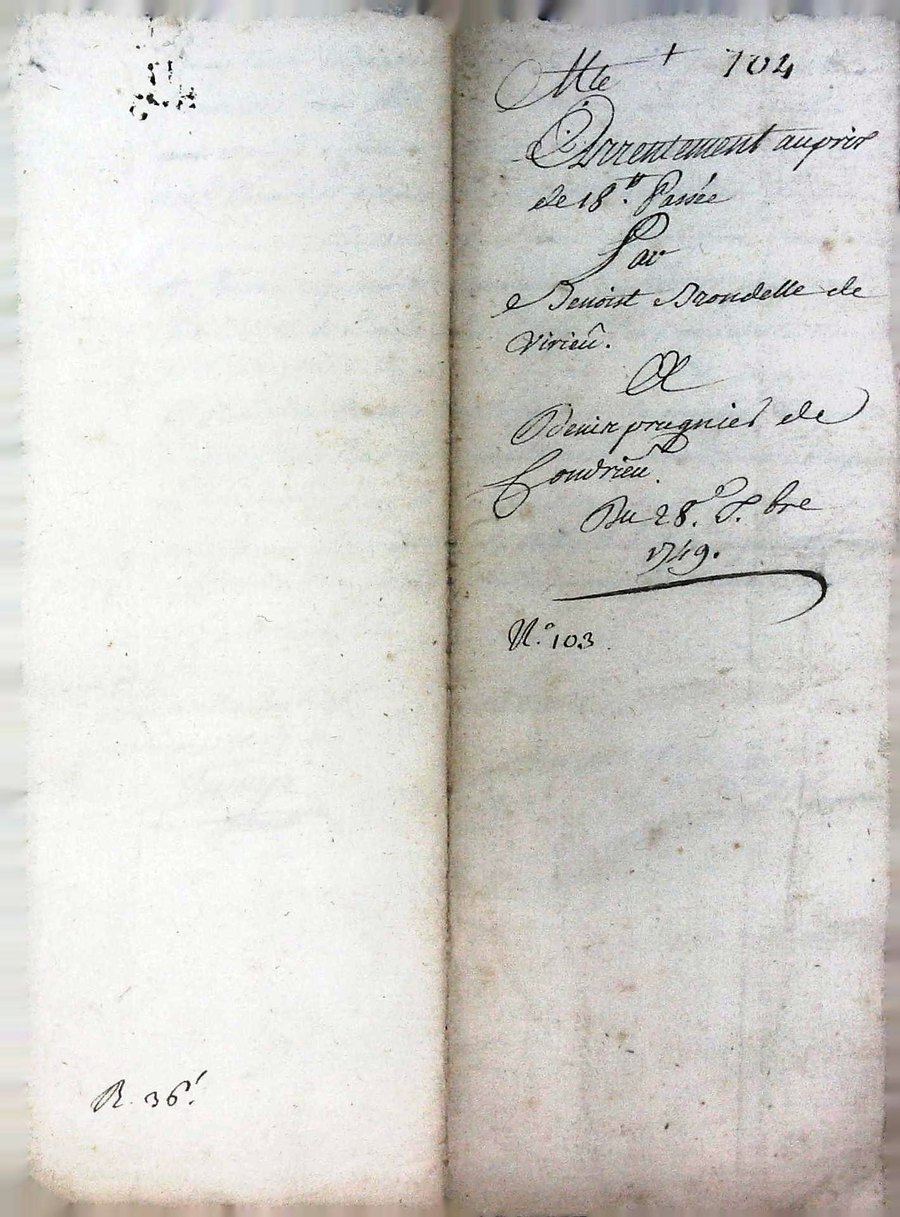 + 104
Arrentement au prix
de 18.tt Passée
Par
Benoist Brondelle de
Virieû.
A
Denis prugnies de
Condrieû.
Du 28.e 8.bre
1749.
N.° 103
R. 36.s